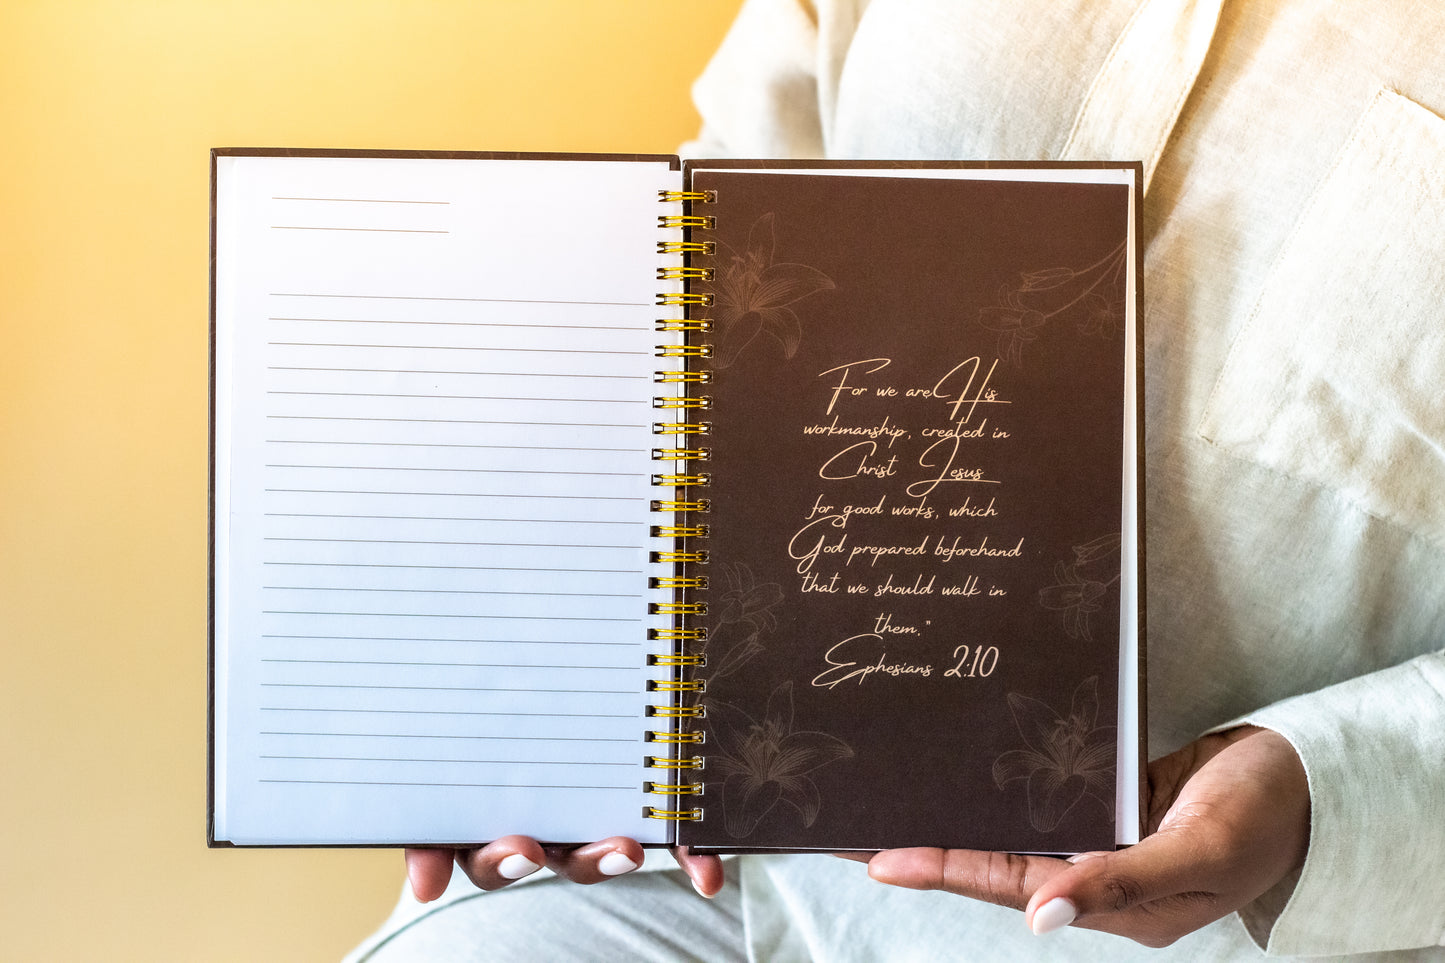 For we are His
workmanship, created in
Christ Jesus
for good works, which
God prepared beforehand
that we should walk in
them."
Ephesians 2:10